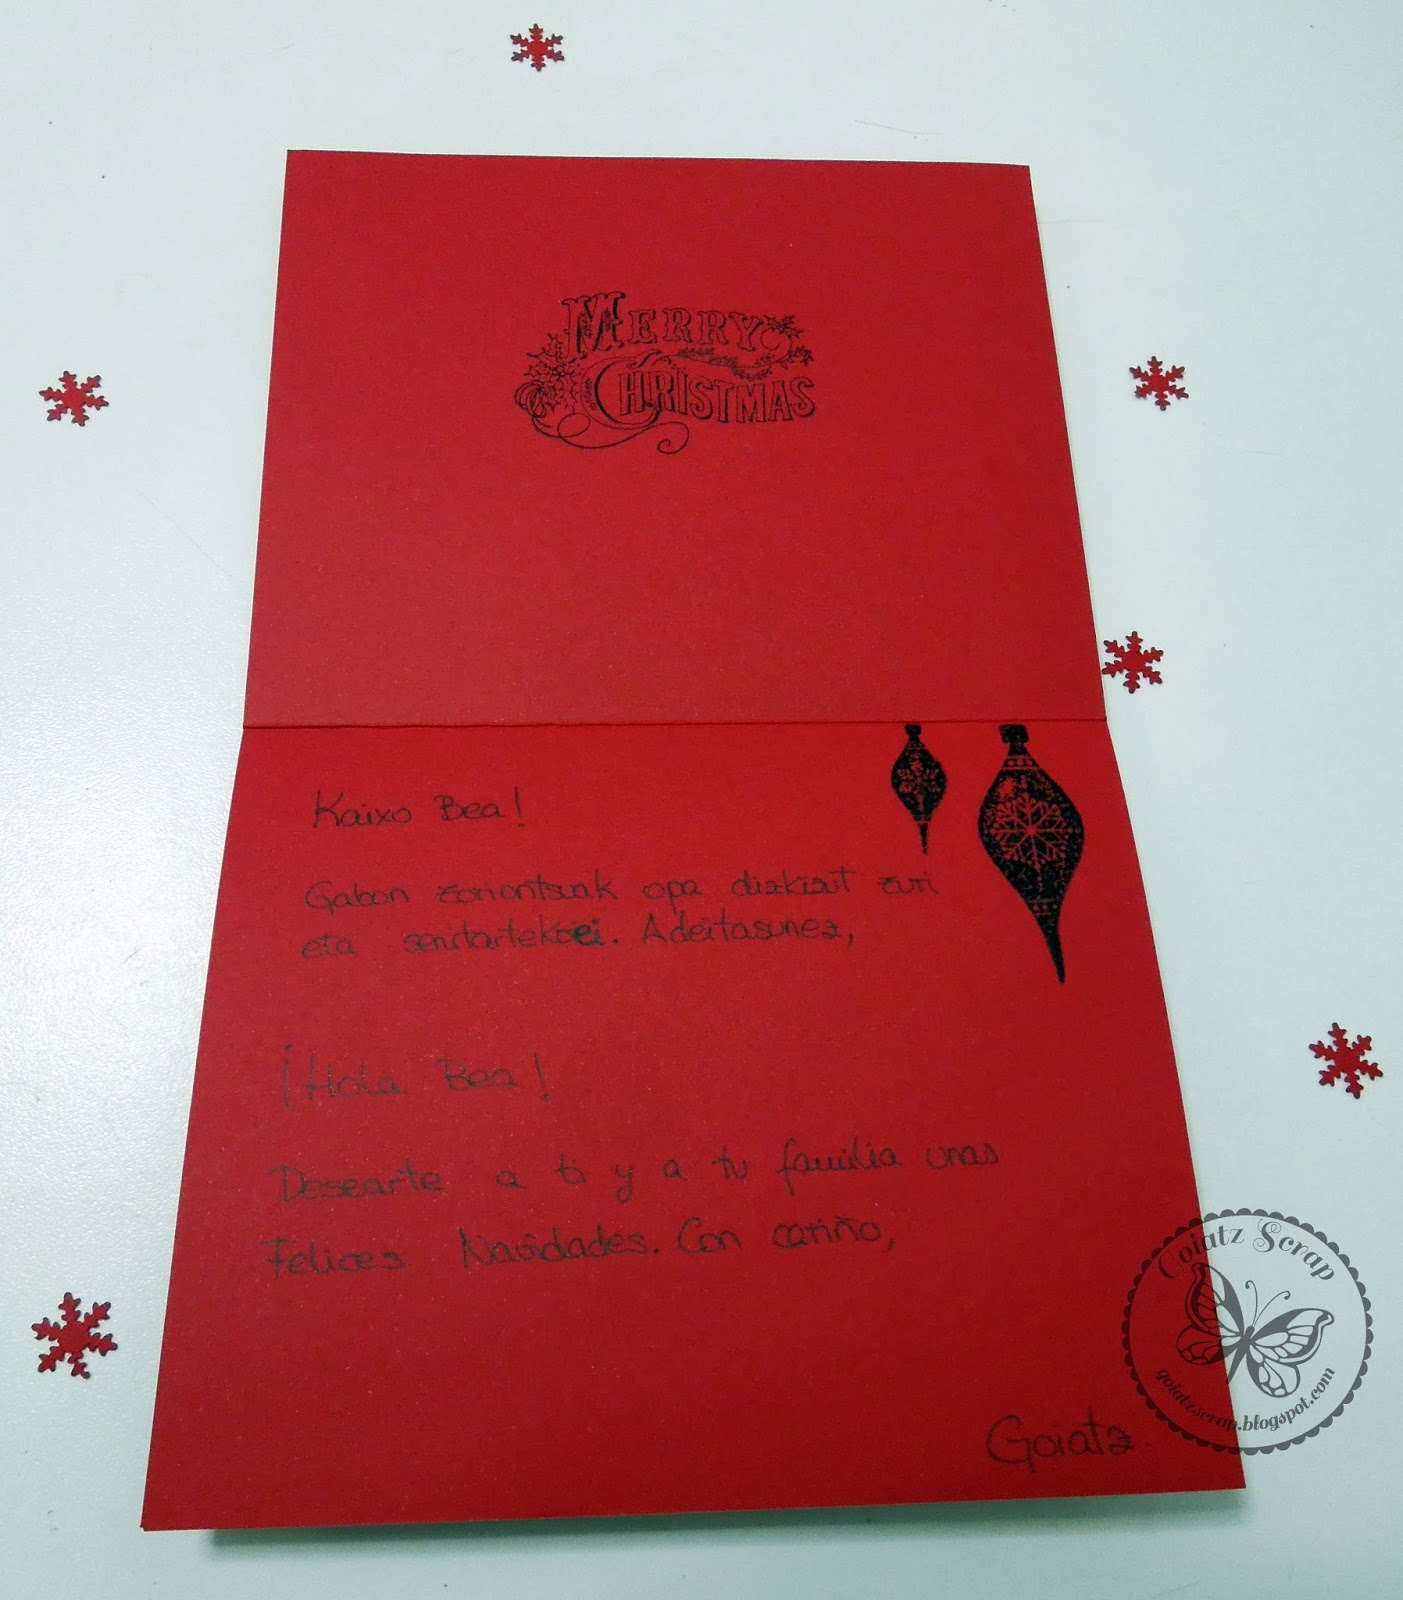 MERRY
CHRISTMAS
Kaixo Bea!
Gabon zoriontsuak opa dizkizut zuri
eta senitartekoei. Adeitasunez,
¡Hola Bea!
Desearte a ti y a tu familia unas
Felices Navidades. Con cariño,
Goiatz.
Goiatz Scrap
goiatzscrap.blogspot.com